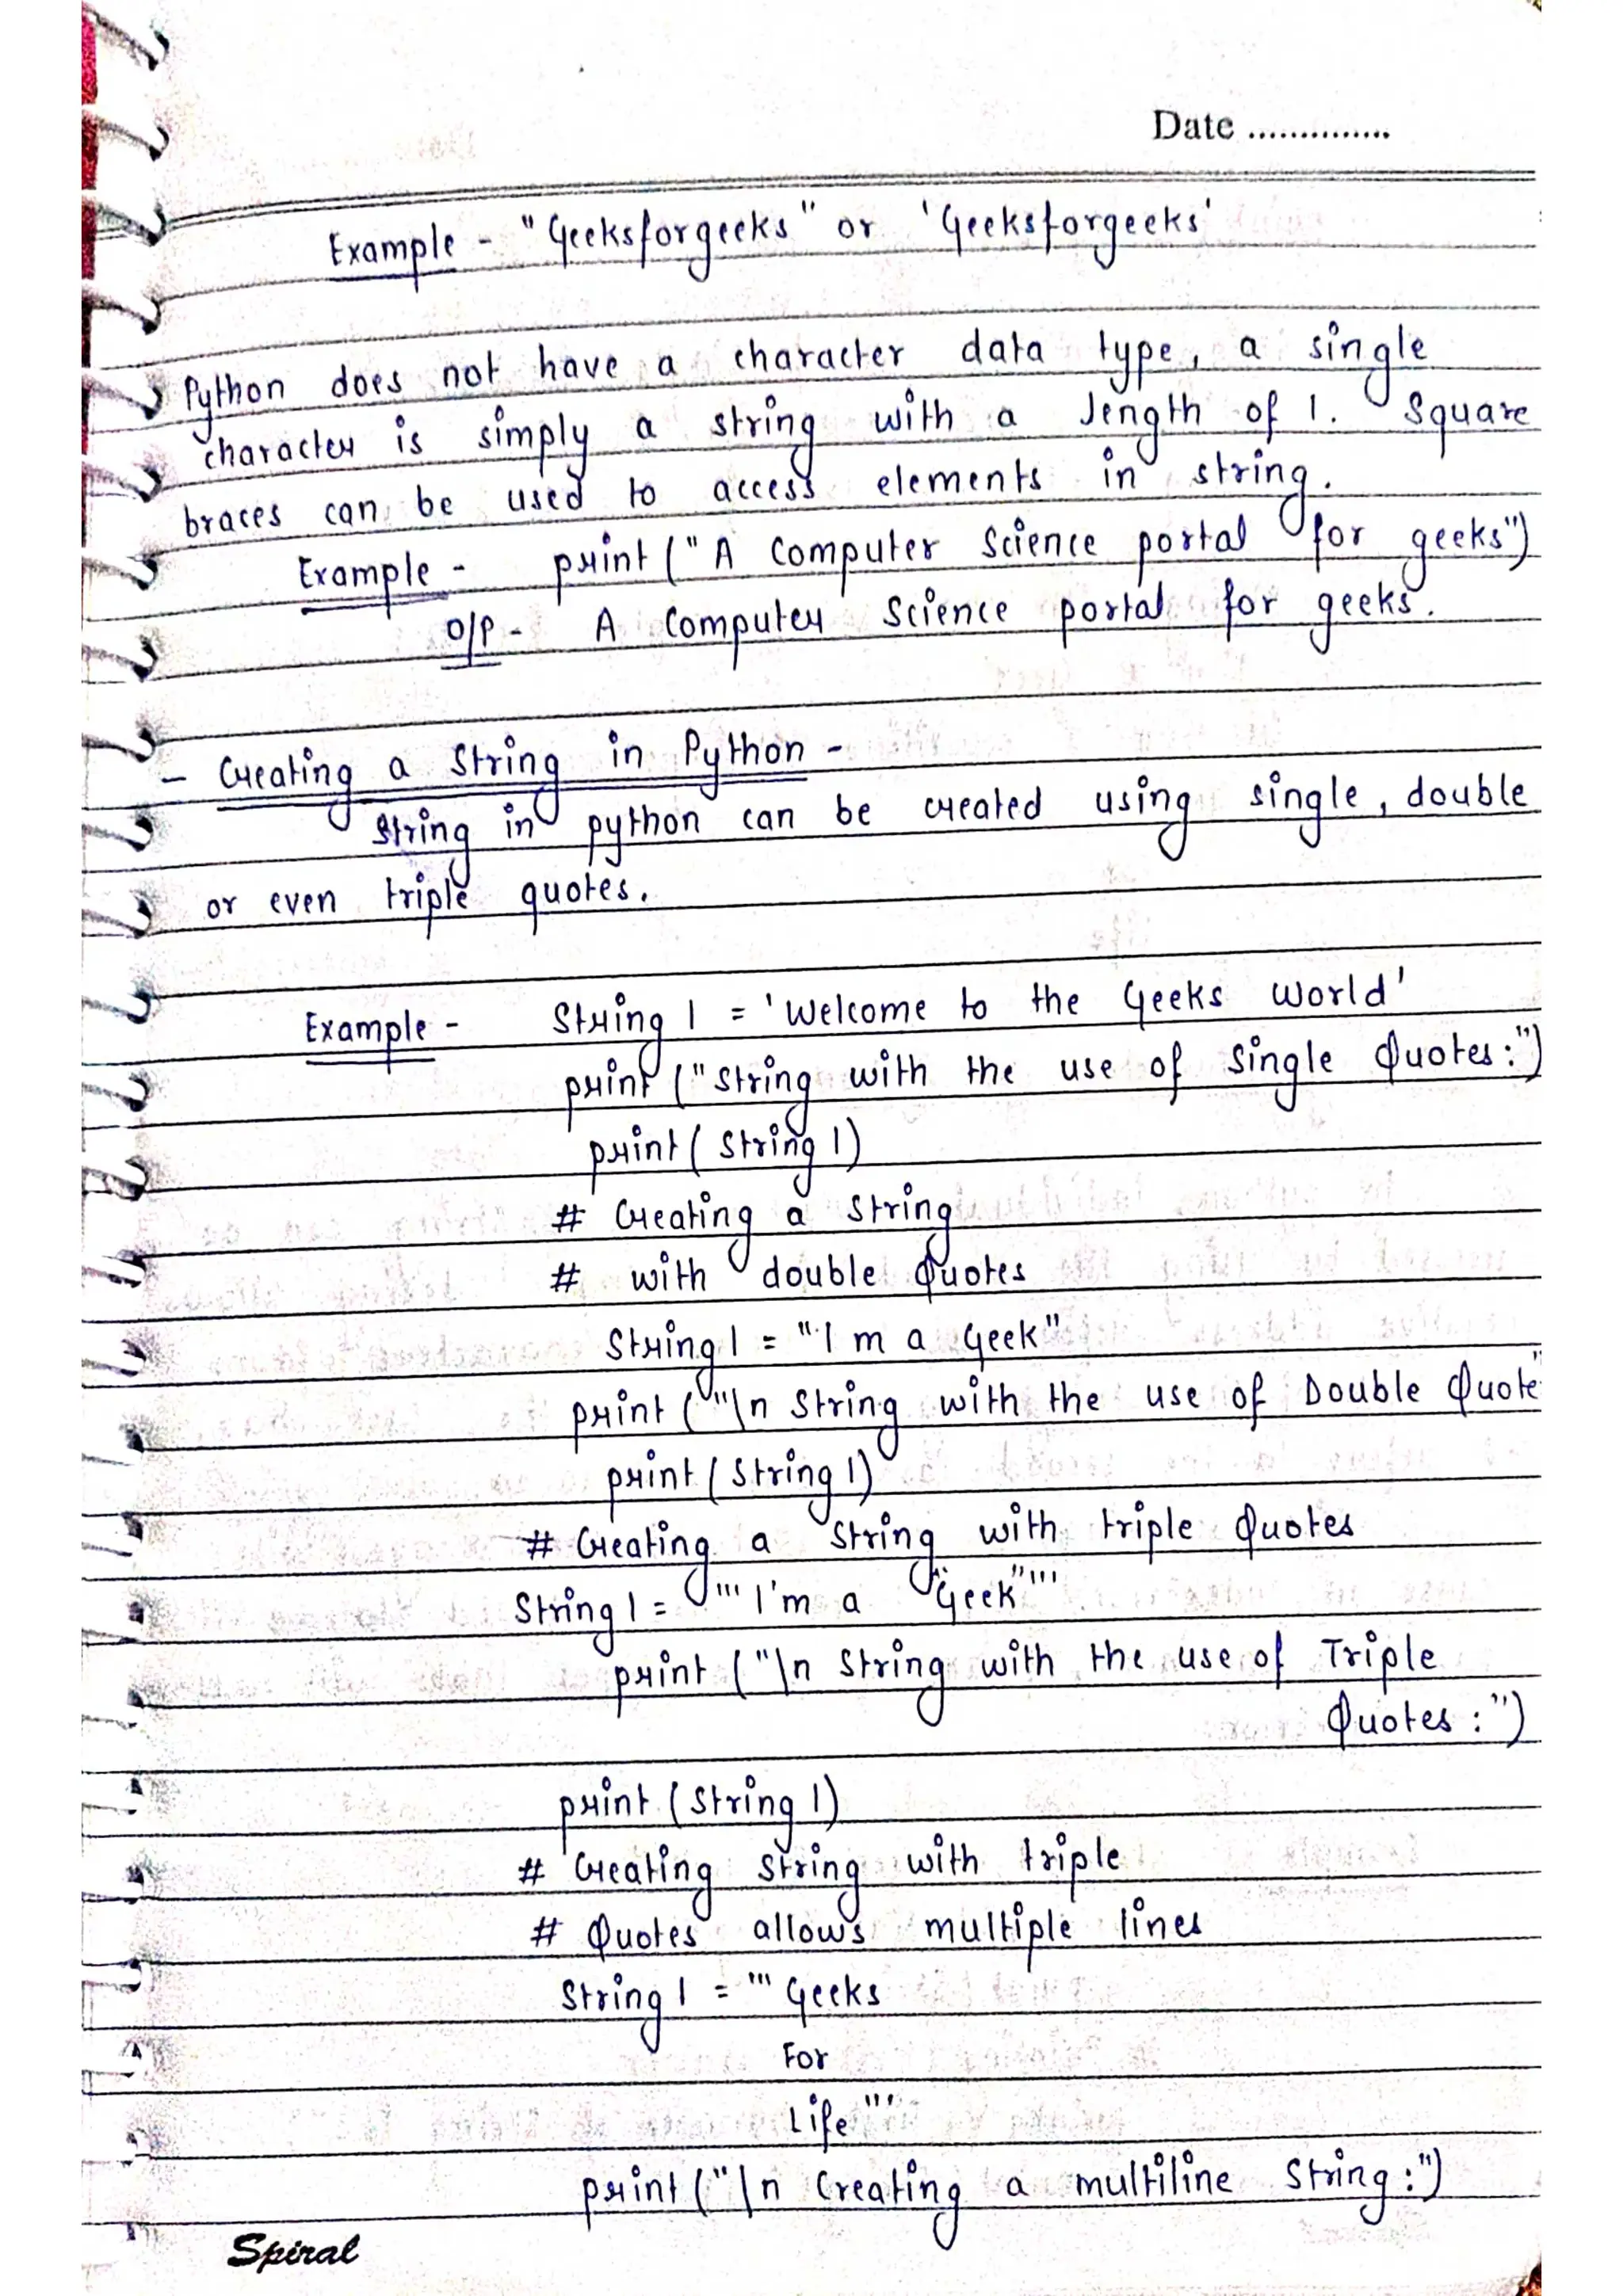 Date ..............
Example - "Geeksforgeeks" or 'Geeksforgeeks'
Python does not have a character data type, a single
character is simply a string with a length of 1. Square
braces can be used to access elements in string.
Example - print ("A Computer Science portal for geeks")
O/P - A Computer Science portal for geeks.
- Creating a String in Python -
String in python can be created using single, double
or even triple quotes.
Example - String 1 = 'Welcome to the Geeks World'
print ("String with the use of Single Quotes:")
print (String 1)
# Creating a String
# with double Quotes
String 1 = "I m a Geek"
print ("\n String with the use of Double Quote"
print (String 1)
# Creating a String with triple Quotes
String 1 = '''I'm a "Geek"'''
print ("\n String with the use of Triple
Quotes :")
print (String 1)
# Creating String with triple
# Quotes allows multiple lines
String 1 = '''Geeks
For
Life'''
print ("\n Creating a multiline String :")
Spiral